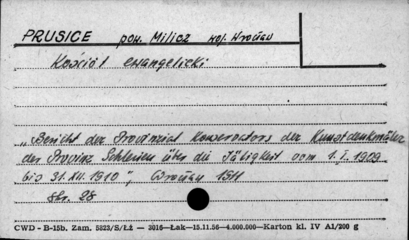 PRUSICE pow. Milicz woj. Wrocław
Kościół ewangelicki
„Bericht des Provinzial Konservators der Kunstdenkmäler
der Provinz Schlesien über die Tätigkeit vom 1. I. 1909
bis 31. XII. 1910", Wrocław 1911
Str. 28
CWD - B-15b. Zam. 5823/S/Łż — 3016—Łak—15.11.56—4.000.000—Karton kl. IV A1/200 g